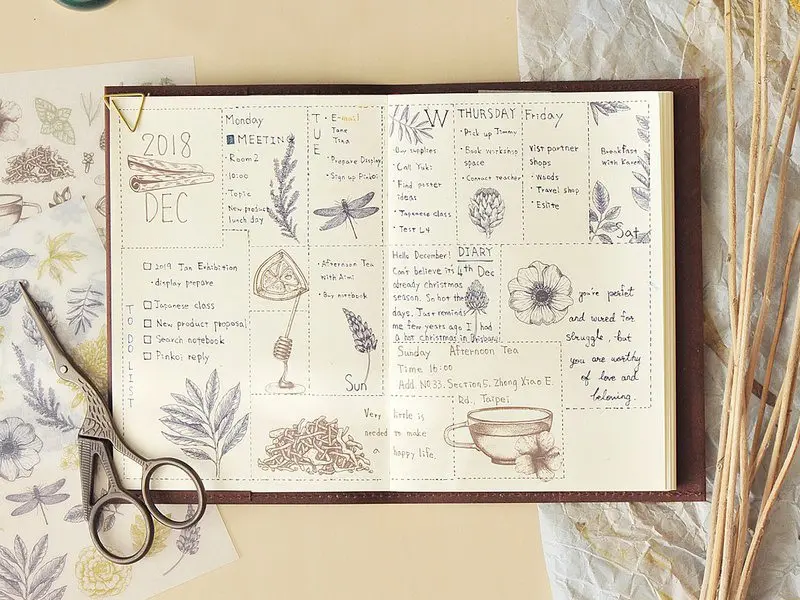 2018
DEC
Monday
MEETING
• Room 2
• 10:00
• Topic
New product
lunch day
TUE
• E-mail
Jane
Tina
• Prepare Display
• Sign up Pinkoi
W
Buy supplies
• Call Yuki
• Find poster
ideas
• Japanese class
• Test L4
THURSDAY
• Pick up Jimmy
• Book workshop
space
• Contact teacher
Friday
Visit partner
shops
• Woods
• Travel shop
• Eslite
Breakfast
with Karen
Sat
TO DO LIST
2019 Jan Exhibition
• display prepare
Japanese class
New product proposal
Search notebook
Pinkoi reply
• Afternoon Tea
with Aimi
• Buy notebook
Sun
DIARY
4th Dec
Hello December!
Can't believe it's
already christmas
season. So hot the
days. Just reminds
me few years ago I had
a hot christmas in Brisbane
you're perfect
and wired for
struggle, but
you are worthy
of love and
beloning.
Sunday Afternoon Tea
Time 16:00
Add. NO.33. Section 5. Zhong Xiao E.
Rd., Taipei
Very little is
needed to make
a happy life.